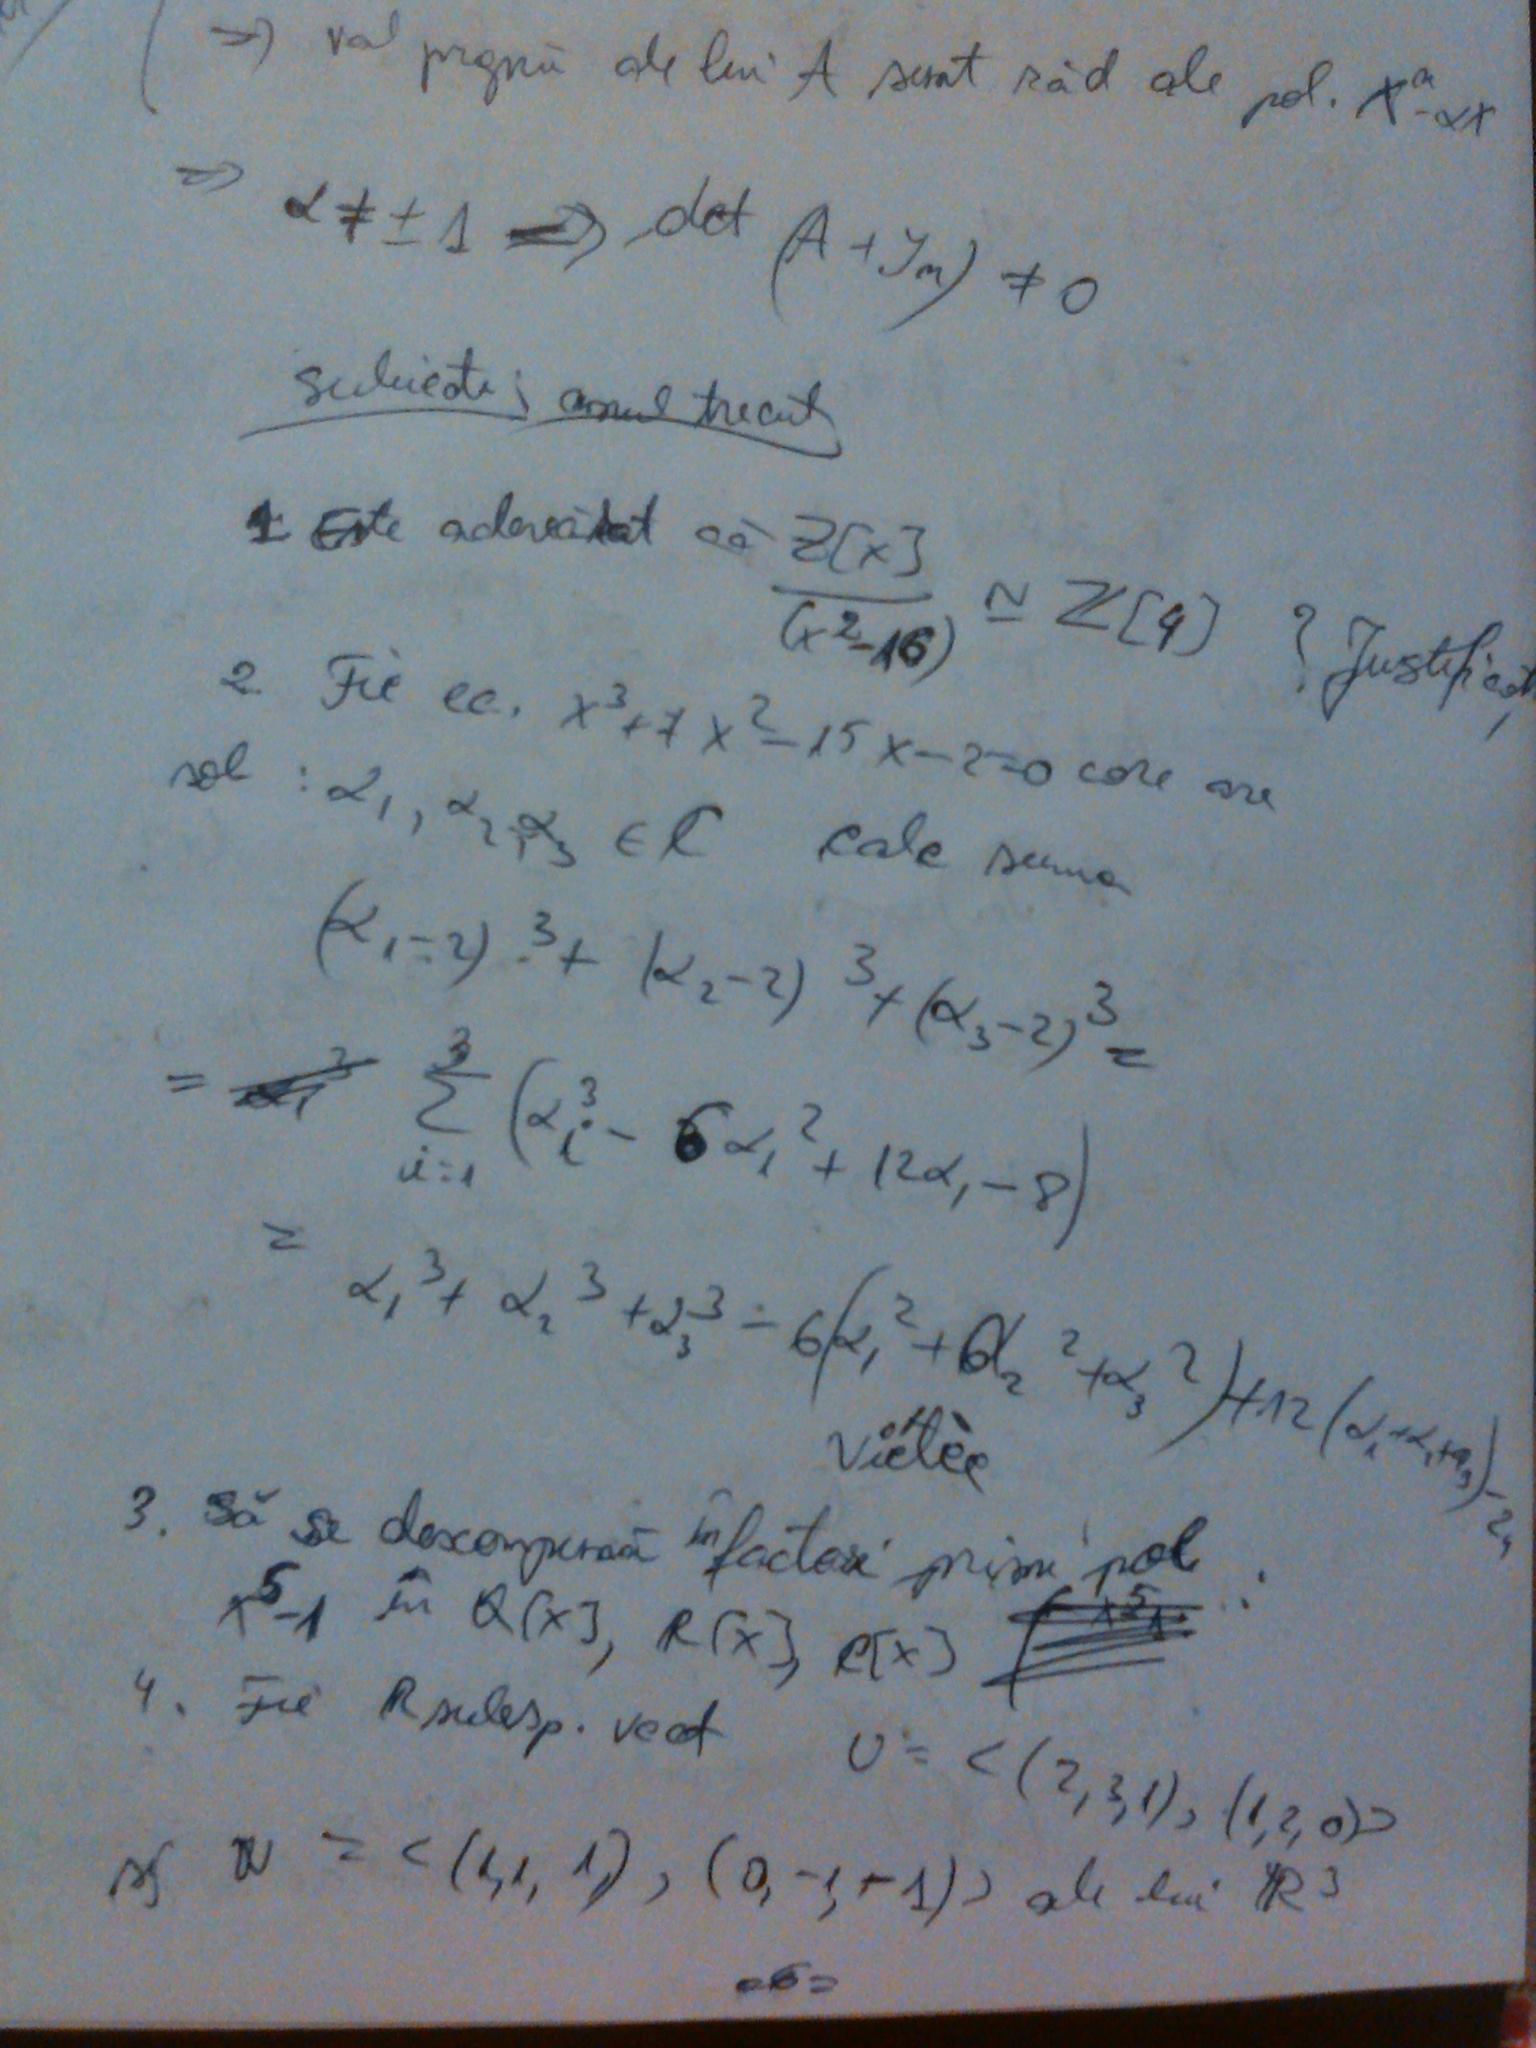 => val proprii ale lui A sunt răd ale pol. X^n-αX
=> α ≠ ± 1 => det (A + I_n) ≠ 0
subiecte; anul trecut
1 Este adevărat că Z[x]/(x^2-16) ≃ Z[4] ? Justificați
2 Fie ec. x^3+7x^2-15x-2=0 care are
sol : α_1, α_2, α_3 ∈ C calc suma
(α_1-2)^3 + (α_2-2)^3 + (α_3-2)^3 =
= Σ_{i=1}^{3} (α_i^3 - 6α_1^2 + 12α_1 - 8)
= α_1^3 + α_2^3 + α_3^3 - 6(α_1^2 + α_2^2 + α_3^2) + 12(α_1+α_2+α_3) - 24
Viette
3. Să se descompună în factori primi pol
x^5-1 în Q[x], R[x], C[x] :
4. Fie R subsp. vect U = <(2,3,1), (1,2,0)>
și W = <(1,1,1), (0,-1,+1)> ale lui R^3
=6=